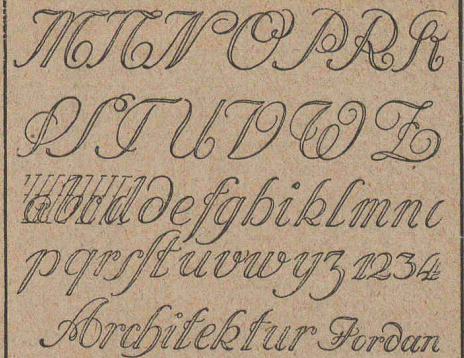 M N N O P R K
P S T U V W Z
a b c d d e f g h i k l m n
p q r s ſt u v w y z 1 2 3 4
Architektur Jordan